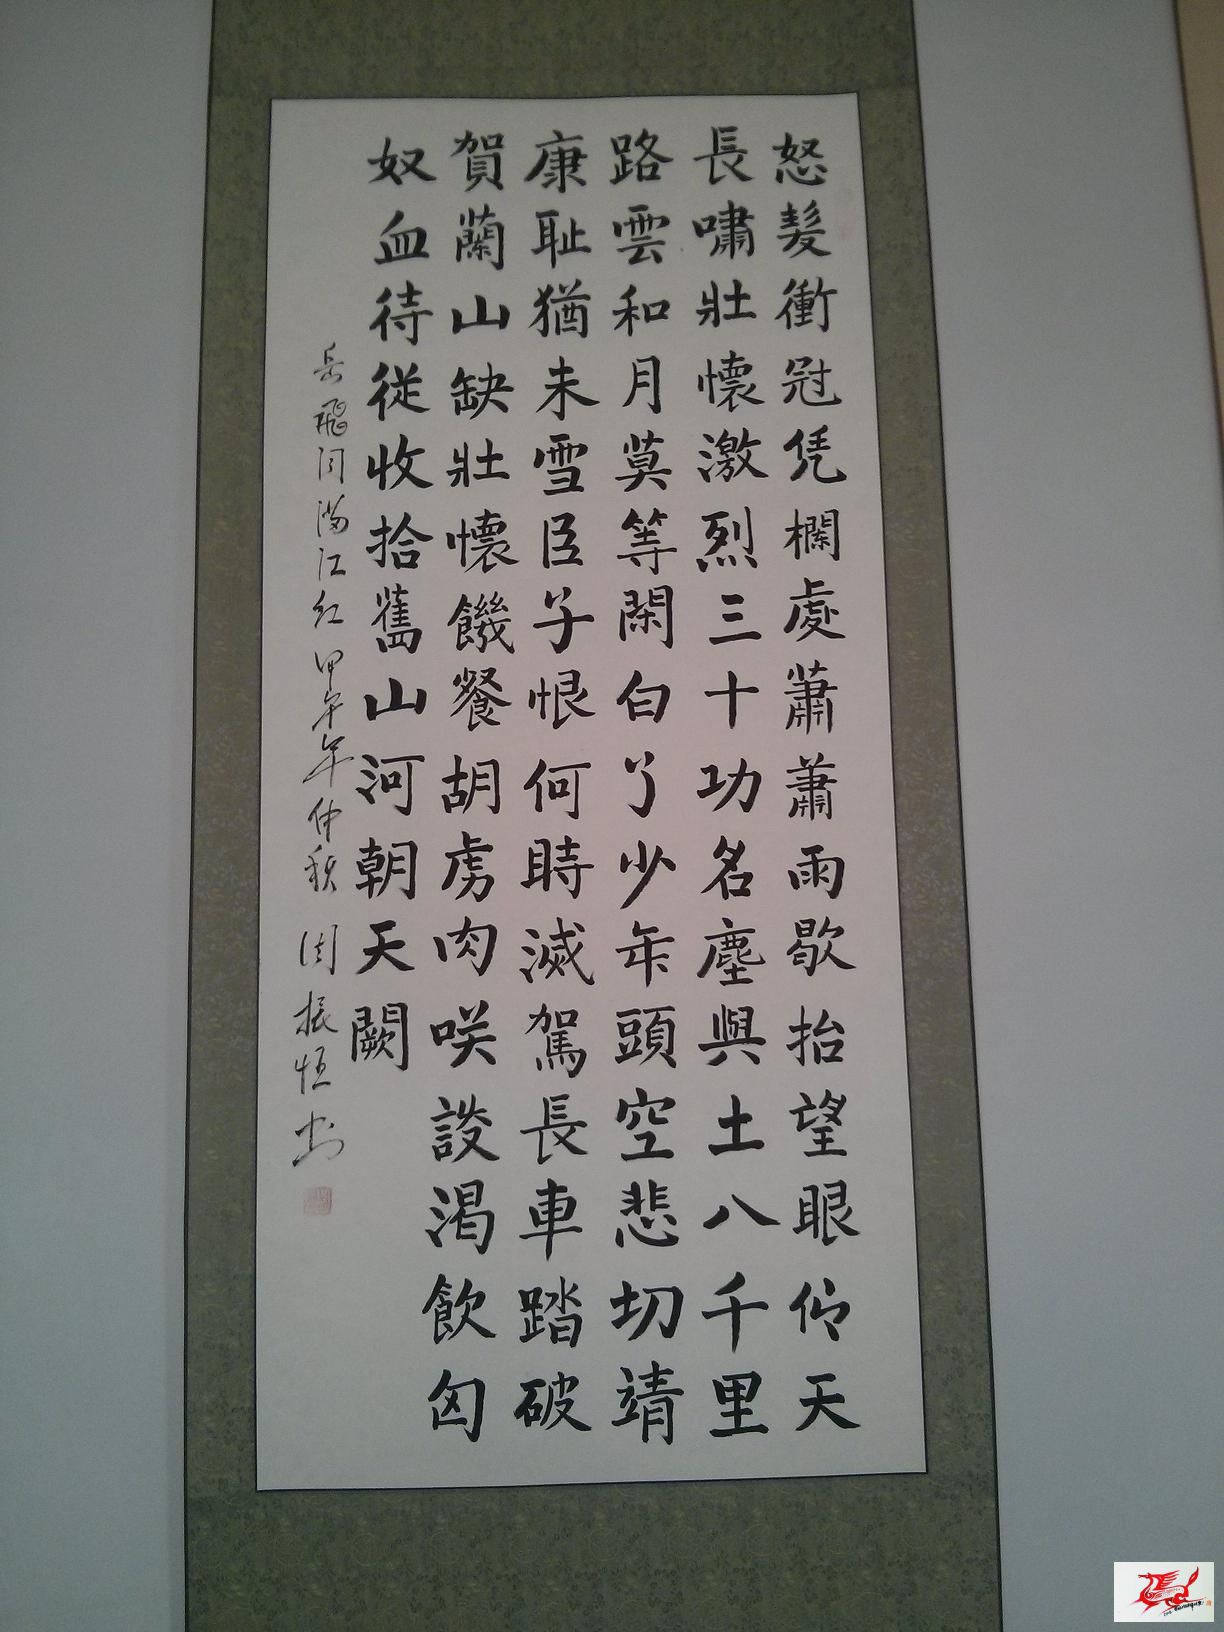 怒髮衝冠凭欄處蕭蕭雨歇抬望眼仰天
長嘯壯懷激烈三十功名塵與土八千里
路雲和月莫等閑白了少年頭空悲切靖
康耻猶未雪臣子恨何時滅駕長車踏破
賀蘭山缺壯懷饑餐胡虜肉咲談渴飲匈
奴血待從收拾舊山河朝天闕
岳飛詞滿江紅甲午年仲秋 周振恒書